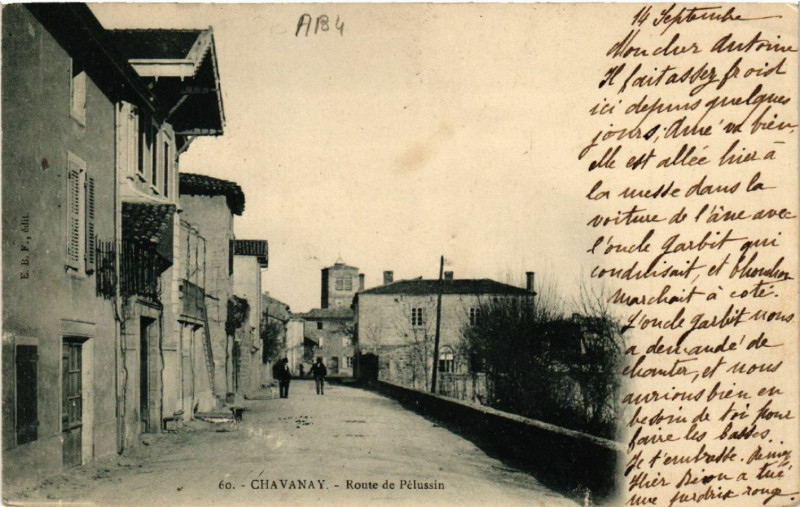 AB4
14 Septembre
Mon cher Antoine
Il fait assez froid
ici depuis quelques
jours, Amé va bien,
elle est allée hier à
la messe dans la
voiture de l'âne avec
l'oncle Garbit qui
conduisait, et
marchait à coté.
L'oncle Garbit nous
a demandé de
chanter, et nous
aurions bien en
besoin de toi pour
faire les basses.
Je t'embrasse.
Hier a tué
une perdrix rouge.
E. B. F., édit.
60. - CHAVANAY. - Route de Pélussin